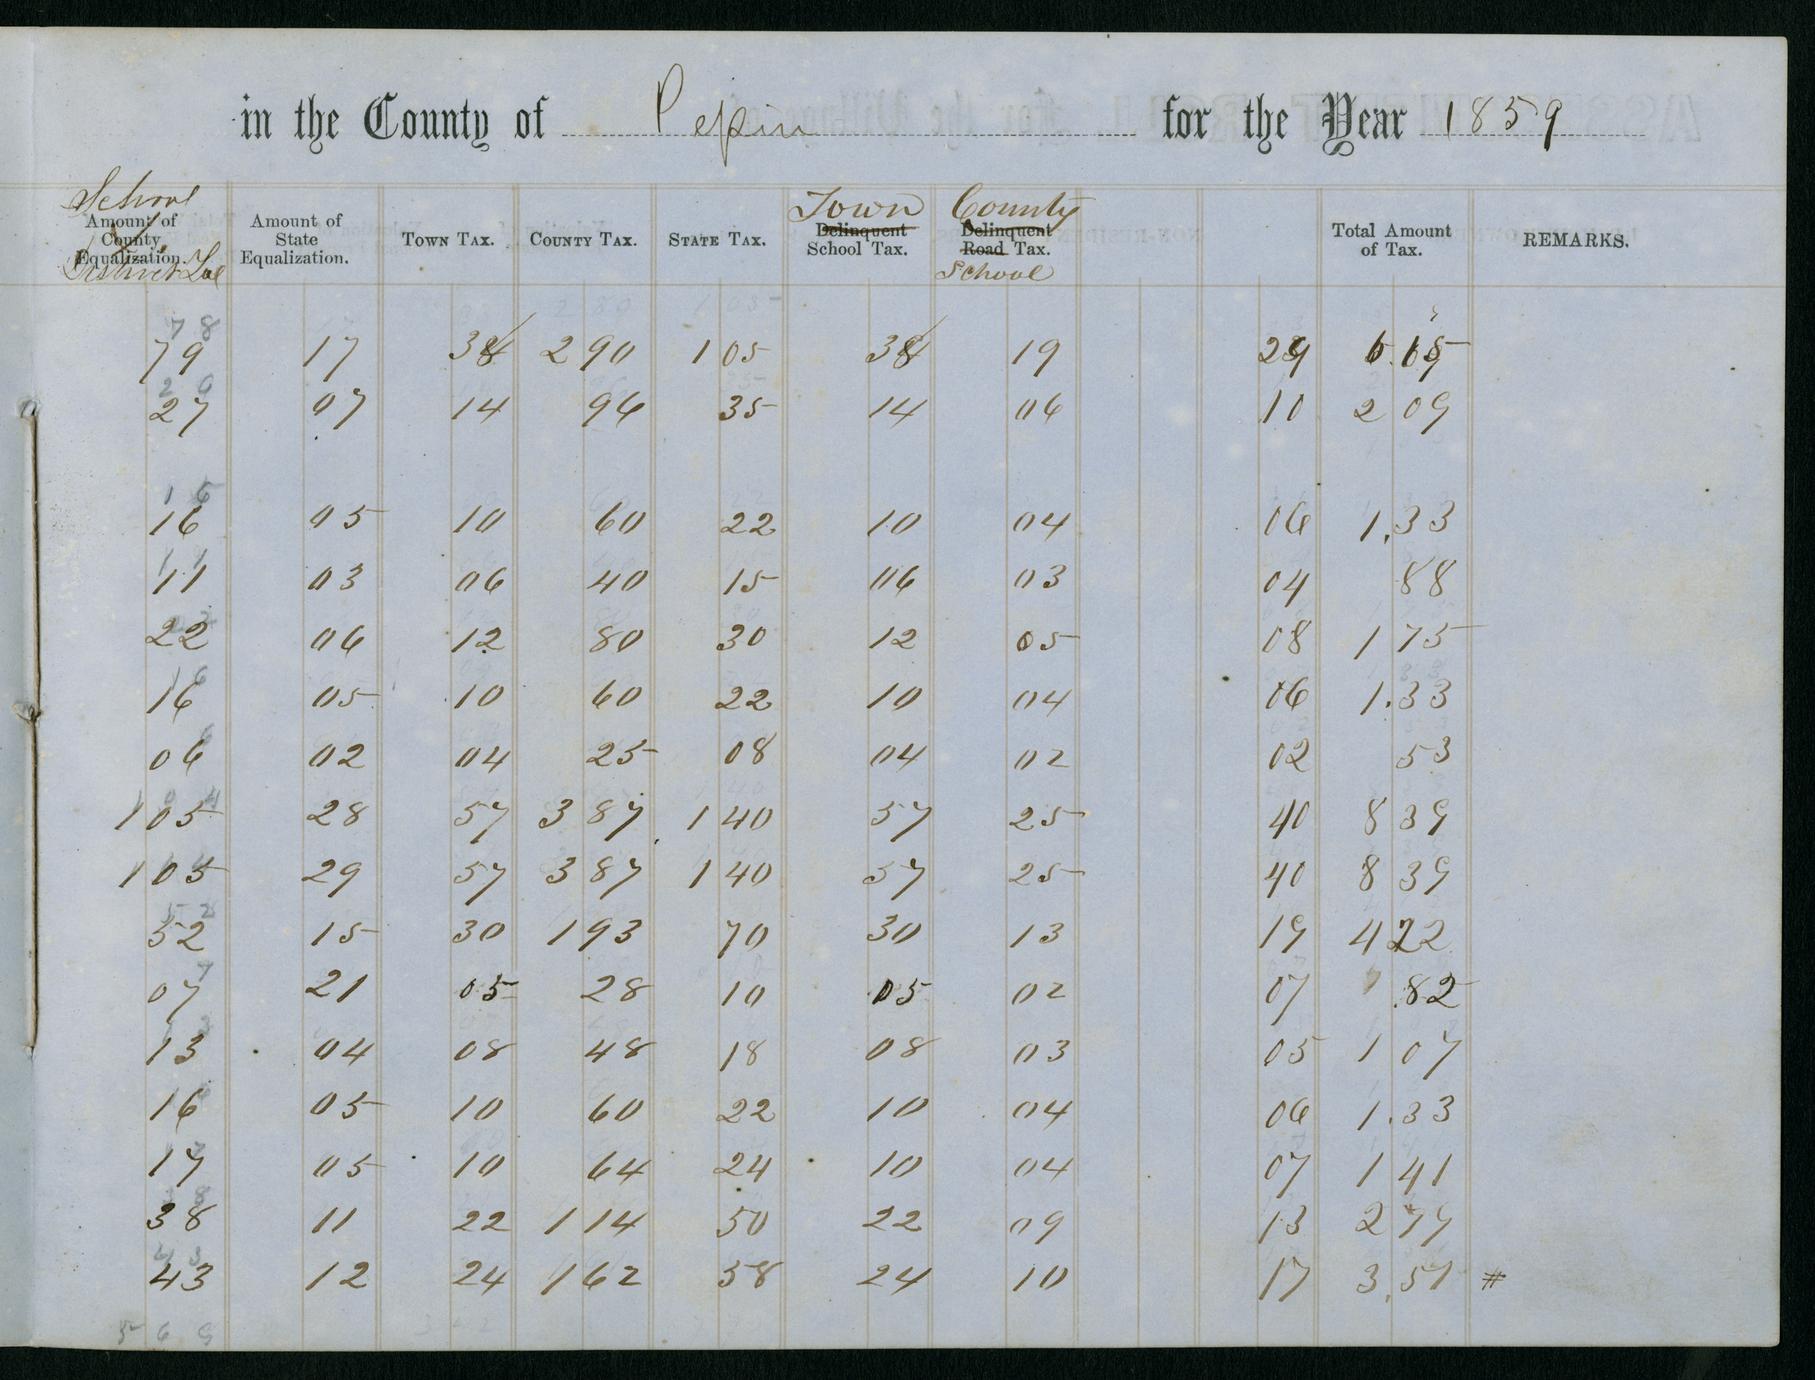 in the County of Pepin for the Year 1859
School Town County
Amount of County Equalization. Amount of State Equalization. Town Tax. County Tax. State Tax. Delinquent School Tax. Delinquent Road Tax. Total Amount of Tax. REMARKS.
District School
78
79 17 38 290 105 38 19 29
20
27 07 14 96 35 14 06 10 2 09
16 05 10 60 22 10 04 06 1.33
11 03 06 40 15 06 03 04 88
22 06 12 80 30 12 05 08 1 75
16
16 05 10 60 22 10 04 06 1.33
06 02 04 25 08 04 02 02 53
105 28 57 387 140 57 25 40 8 39
105 29 57 387 140 57 25 40 8 39
52
52 15 30 193 70 30 13 19 4 22
7
07 21 05 28 10 05 02 07 .82
13 04 08 48 18 08 03 05 1 07
16 05 10 60 22 10 04 06 1.33
17 05 10 64 24 10 04 07 1 41
38
38 11 22 114 50 22 09 13 2 79
43
43 12 24 162 58 24 10 17 3.51 #
5 6 9